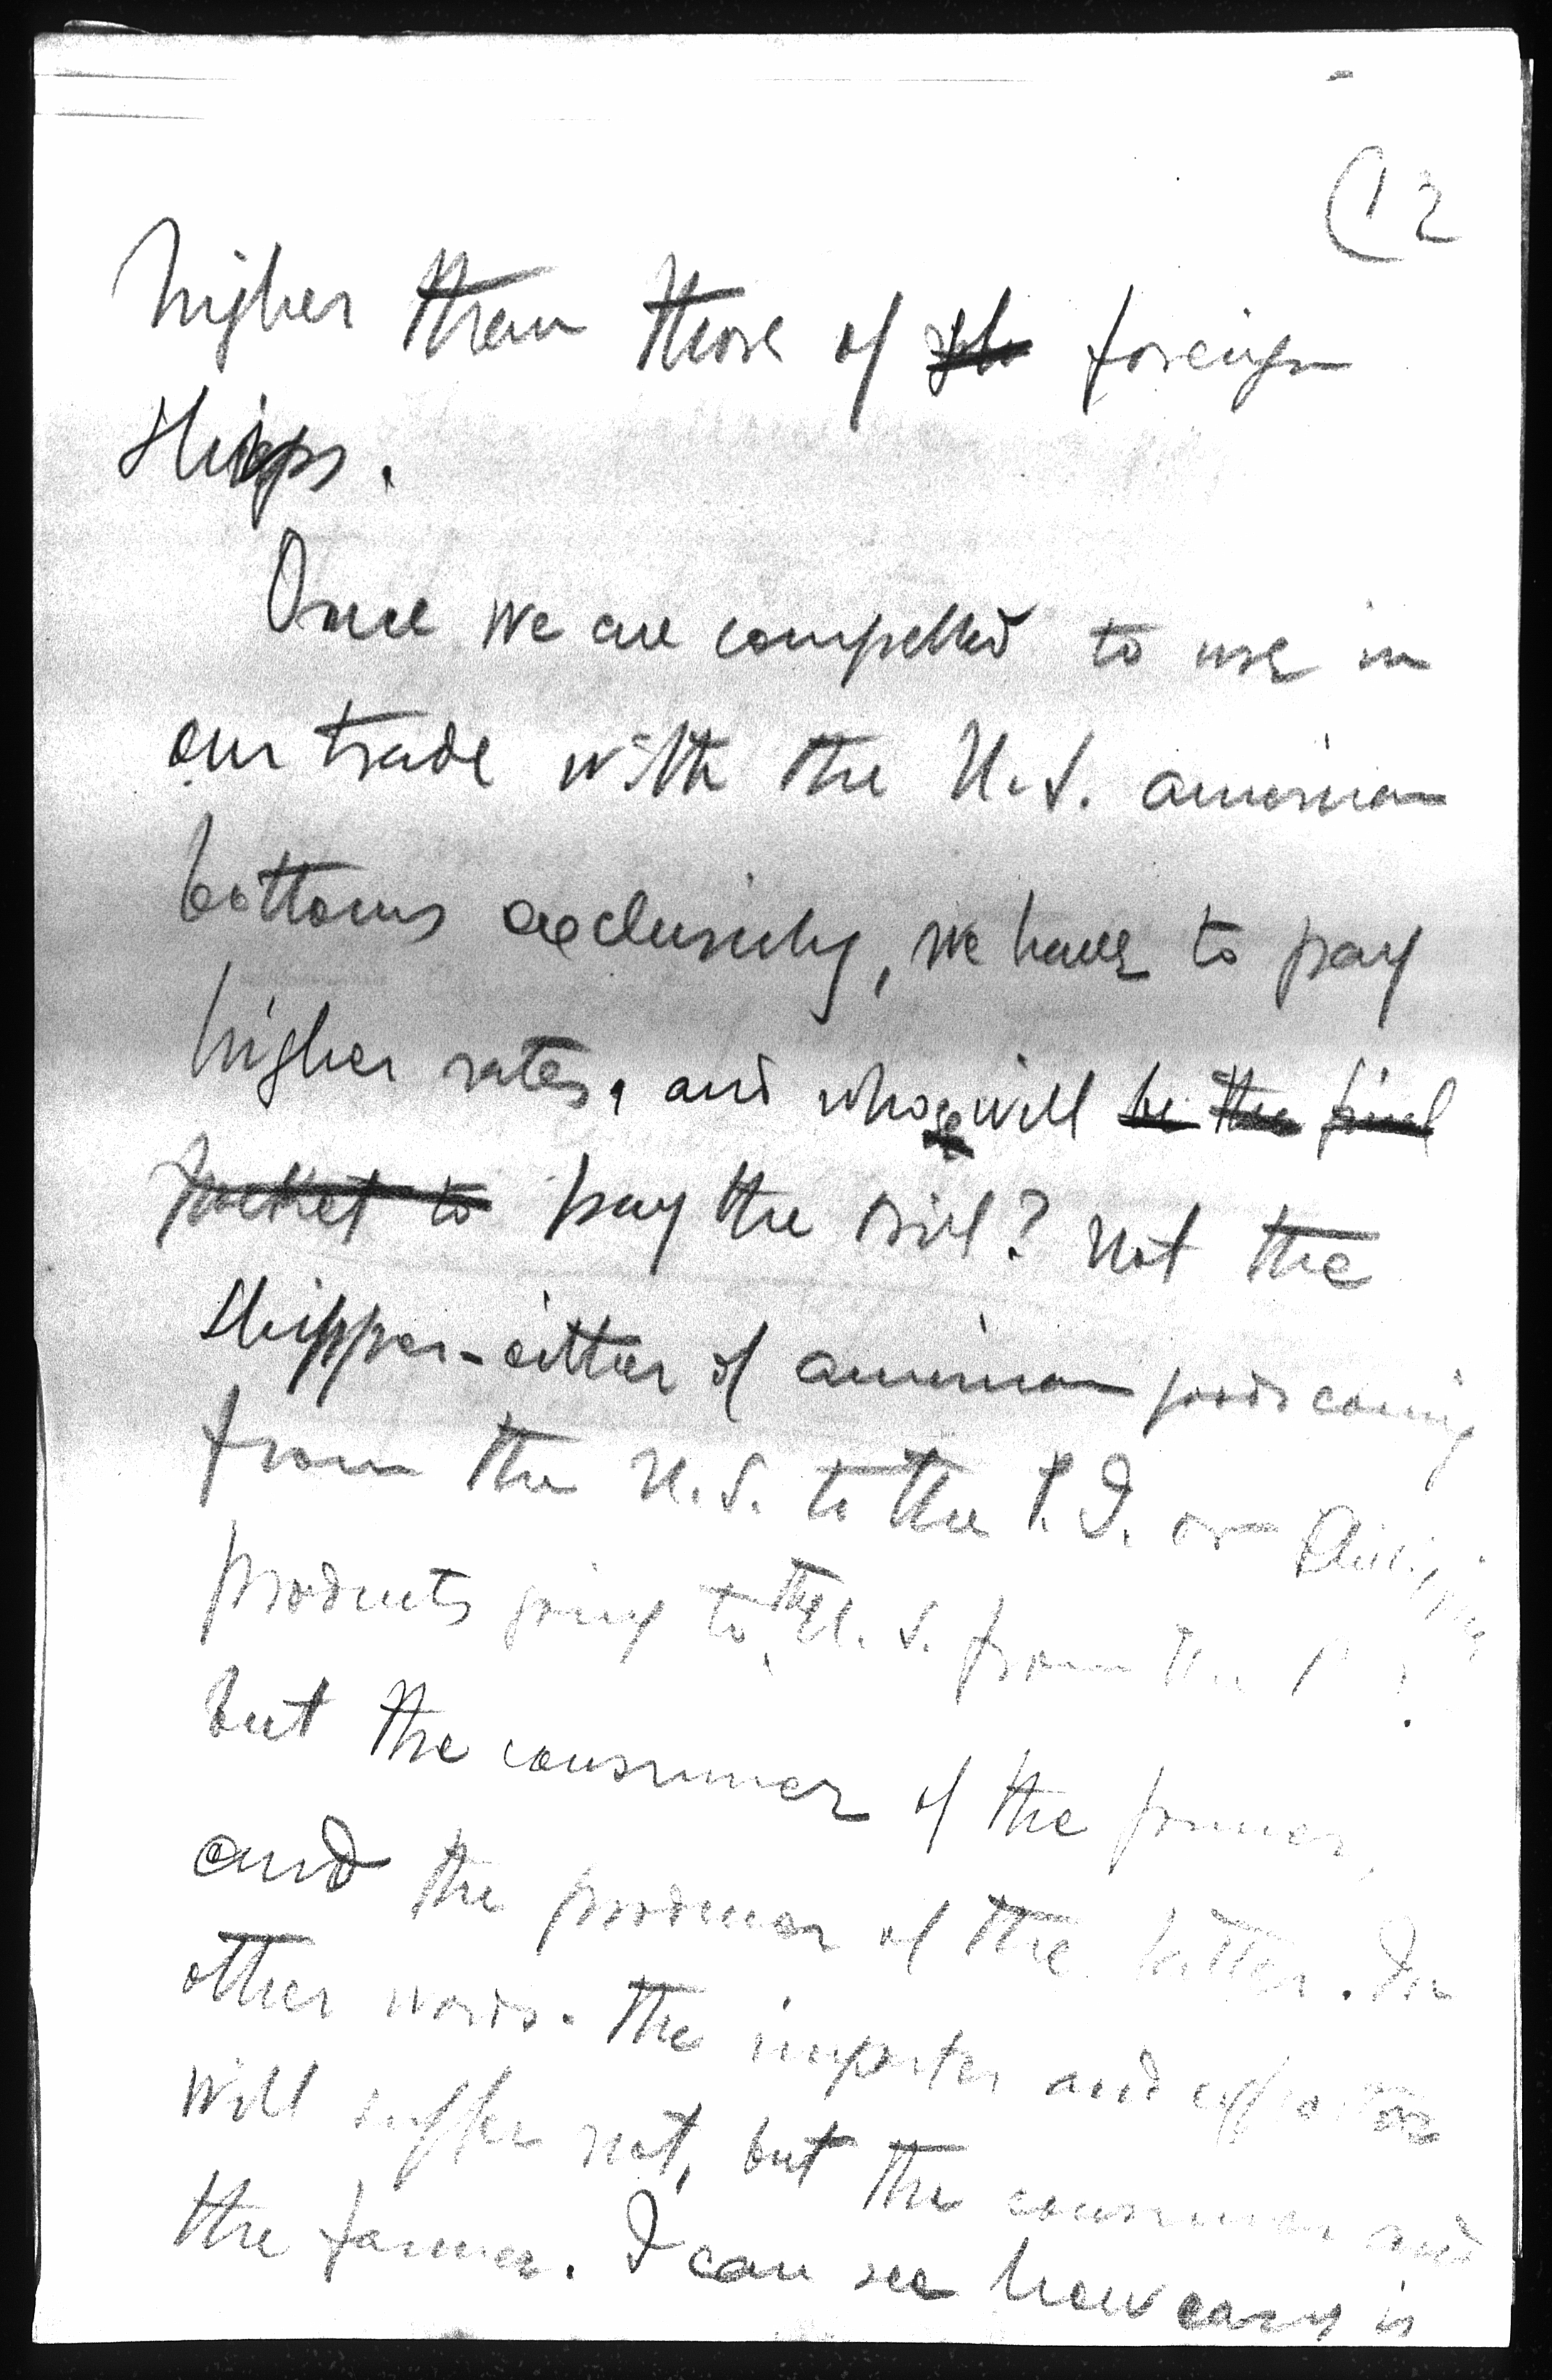 (12
higher than those of foreign
ships.
Once we are compelled to use in
our trade with the U.S. american
bottoms exclusively, we have to pay
higher rates, and who will be the final
pocket to pay the bill? Not the
shipper - either of american goods coming
from the U.S. to the P.I. or Philippine
products going to the U.S. from the P.I.
but the consumer of the former,
and the producer of the latter. In
other words. The importer and exporter
will suffer not, but the consumer and
the farmer. I can see how easy is